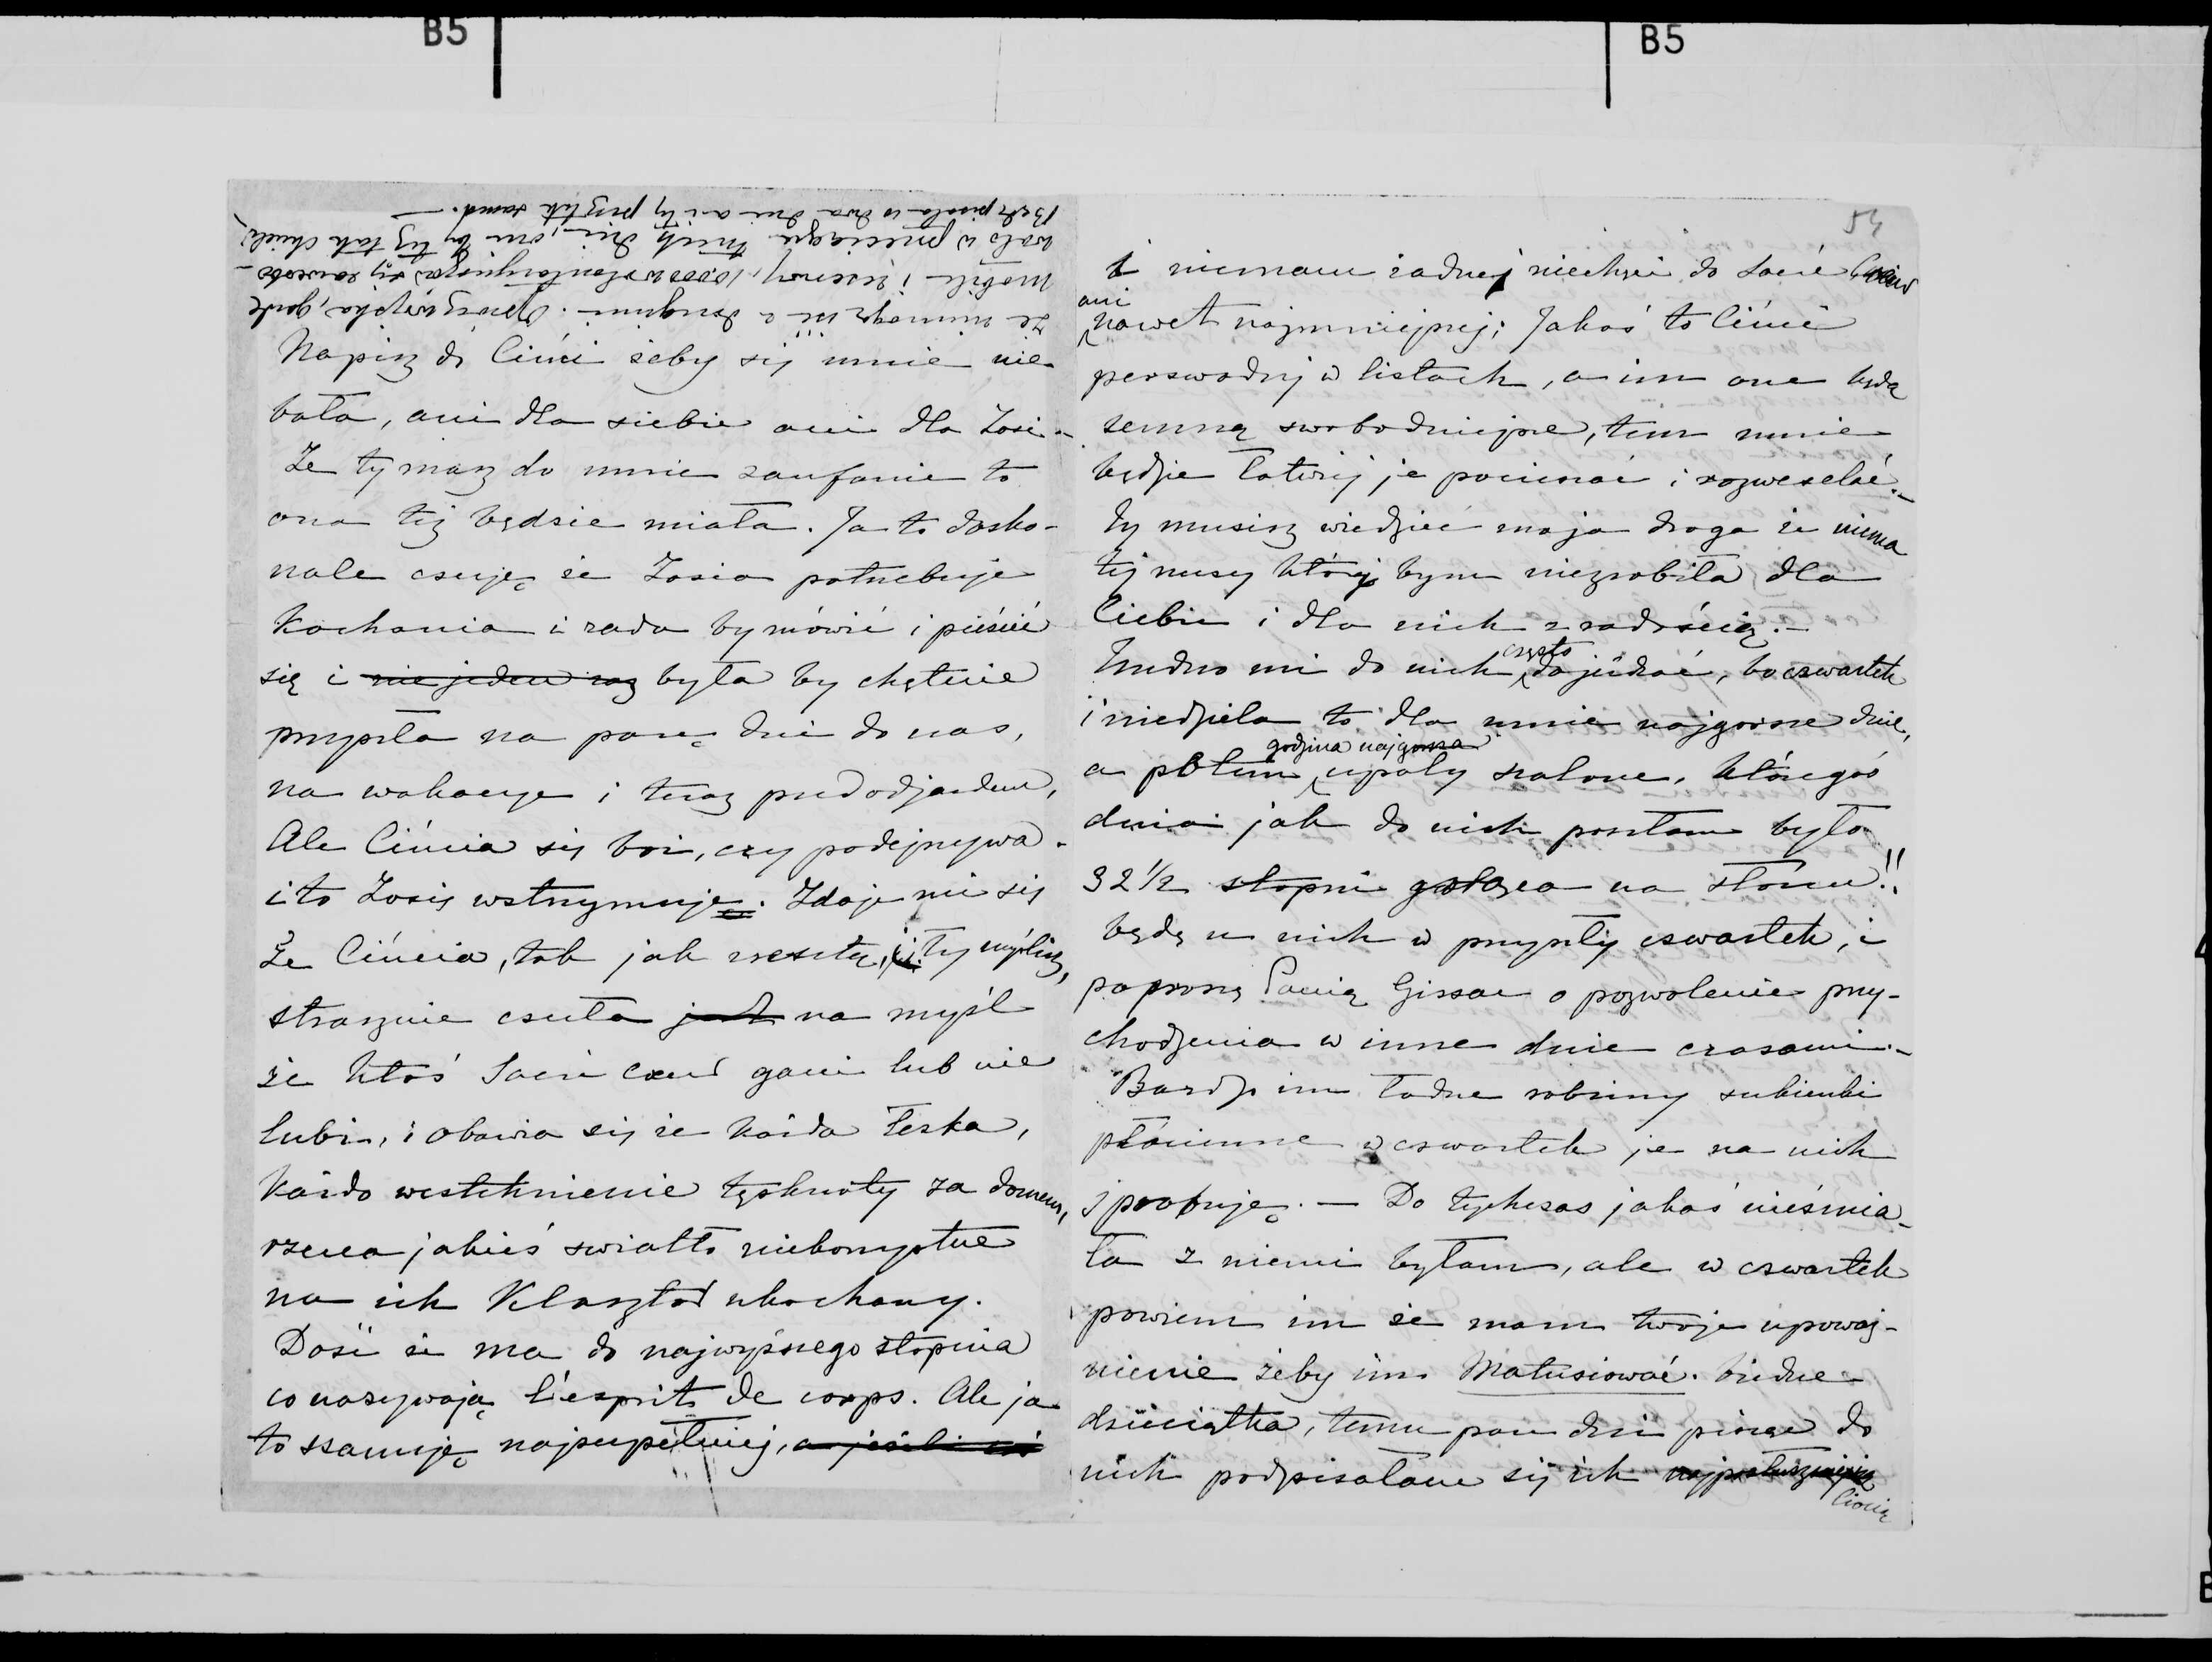 B5
B5
że niemogę iść z drugimi. Straż wiejska, garde
mobile i rezerwy, 10000 wolontaryuszów się zawerbo-
wało w przeciągu trzech dni, on by też tak chciał
Będę pisała w dwa dni a i ty pisz tak samo. —
Napisz do Ciúci żeby się mnie nie
bała, ani dla siebie ani dla Zosi. -
Że ty masz do mnie zaufanie to
ona też będzie miała. Ja to dosko-
nale czuję że Zosia potrzebuje
kochania i rada by mówić i pieścić
się i nie jeden raz była by chętnie
przyszła na parę dni do nas,
na wakacye i teraz przed odjazdem,
Ale Ciúcia się boi, czy podejrzywa -
i to Zosię wstrzymuje. Zdaje mi się
że Ciúcia, tak jak zresztą, i ty myślisz,
strasznie czuła jest na myśl
że ktoś Sacré Cœur gani lub nie
lubi, i obawia się że każda łezka,
każde westchnienie tęsknoty za domem,
rzuca jakieś swiatło niekorzystne
na ich Klasztor ukochany.
Dosić że ma do najwyższego stopnia
co nazywają l'esprit de corps. Ale ja
to szanuję najzupełniej, a jeśli
54
i niemam żadnej niechęci do Sacré Cœur
ani
nawet najmniejszej; Jakoś to Ciúci
perswaduj w listach, a im one będą
zemną swobodniejsze, tem mnie
będzie łatwiej je pocieszać i rozweselać. -
Ty musisz wiedzieć moja droga że niema
tej rzeczy której bym niezrobiła dla
Ciebie i dla nich z radością. -
często
Trudno mi do nich dojeżdżać, bo czwartek
i niedziela to dla mnie najgorsze dnie,
godzina najgorsza
a potem upały szalone. Któregoś
dnia jak do nich poszłam było
32 1/2 stopni gorąca na słońcu!!
będę u nich w przyszły czwartek, i
poproszę Panią Gissar o pozwolenie przy-
chodzenia w inne dnie czasami. -
Bardzo im ładne robimy sukienki
płócienne w czwartek je na nich
sprobuję. — Do tychczas jakoś nieśmia-
ła z niemi byłam, ale w czwartek
powiem im że mam twoje upoważ-
nienie żeby im Matusiować. biedne
dzieciątka, temu parę dni pisząc do
nich podpisałam się ich
Ciocią